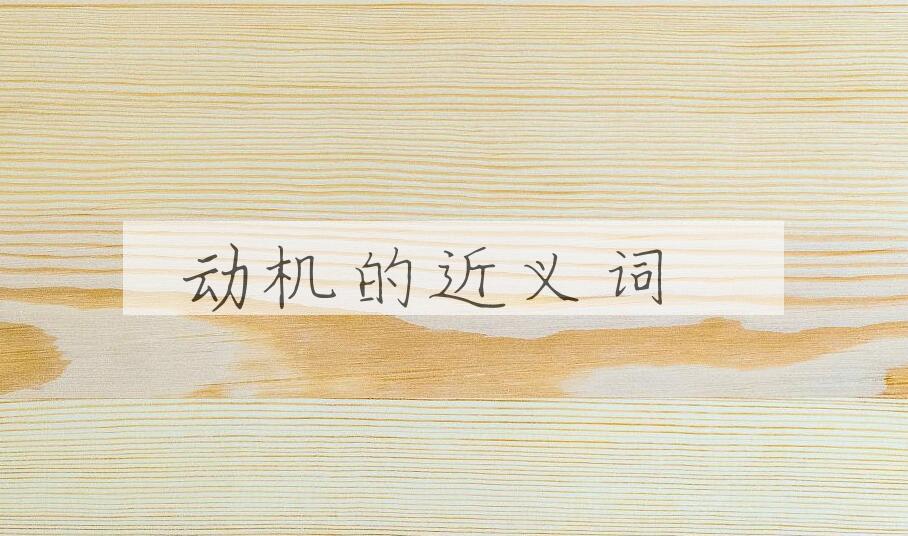 动机的近义词